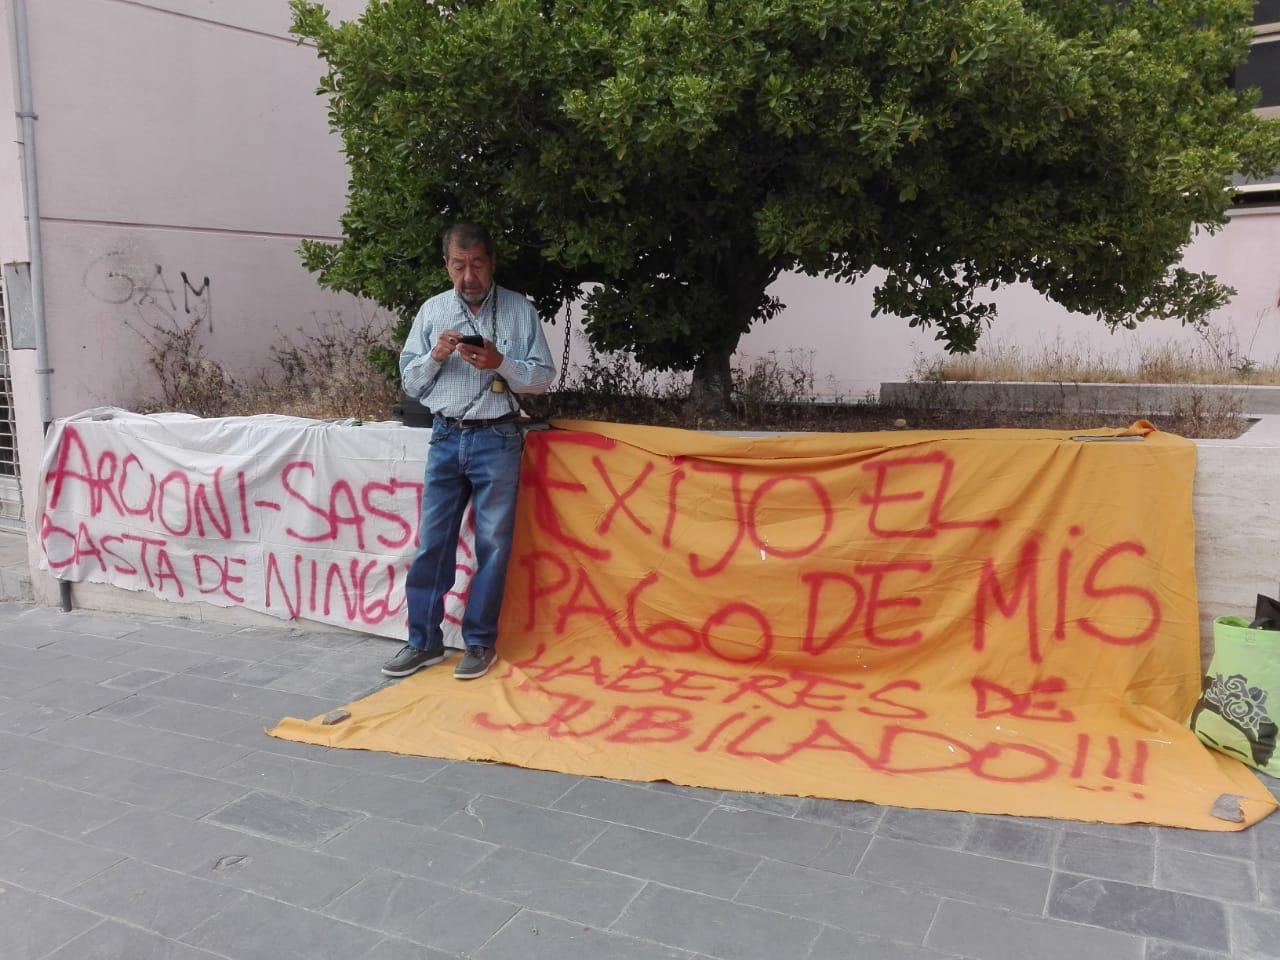 GAM
ARCIONI-SAST
BASTA DE
EXIJO EL
PAGO DE MIS
HABERES DE
JUBILADO!!!